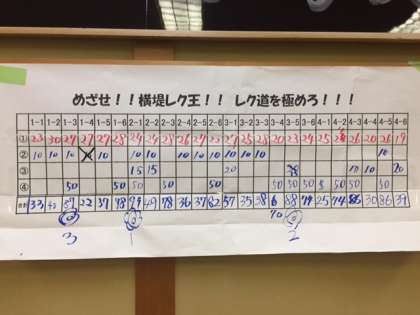 めざせ！！横堤レク王！！ レク道を極めろ！！！
1-1 1-2 1-3 1-4 1-5 1-6 2-1 2-2 2-3 2-4 2-5 2-6 3-1 3-2 3-3 3-4 3-5 3-6 4-1 4-2 4-3 4-4 4-5 4-6
① 23 30 27 27 27 28 24 24 28 26 27 22 27 25 28 20 23 24 25 26 20 26 19
② 10 10 10 10 10 10 10 10 10 10 10 10 10
③ 15 15 20 10 10 20
④ 50 50 50 50 50 50 50 50 50 50 50 50
合計 33 37 22 37 78 49 78 36 37 82 57 35 38 88 25 74 30 86 39
70
3 1 2